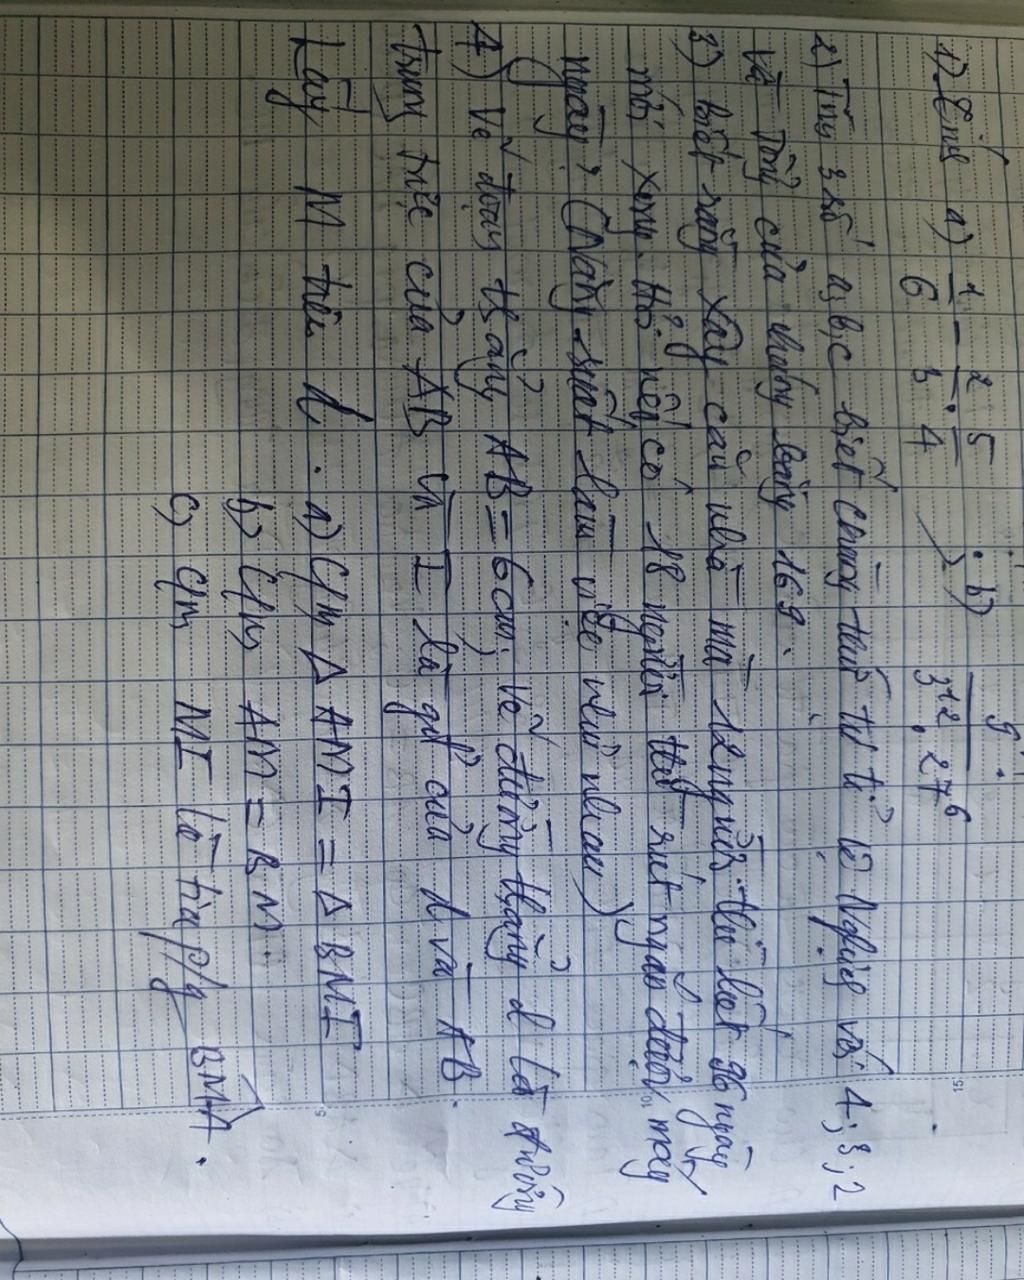 1) Tính a) 1/6 - 2/3 . 5/4 b) 9 / 3¹² . 27⁶
2) Tìm 3 số a, b, c biết chúng thứ tự tỉ lệ Nghịch với 4; 3; 2
Và Tổng của chúng bằng 169.
3) biết rằng xây căn nhà mà 12 người thì hết 96 ngày
mới xong. Hỏi nếu có 18 người thì rút ngắn được mấy
ngày? (Năng suất làm việc như nhau)
4) Vẽ đoạn thẳng AB = 6cm, Vẽ đường thẳng d là đường
trung trực của AB và I là gđ của d và AB.
Lấy M trên d. a) C/m Δ AMI = Δ BMI
b) C/m AM = BM
c) C/m MI là tia p/g BMA.